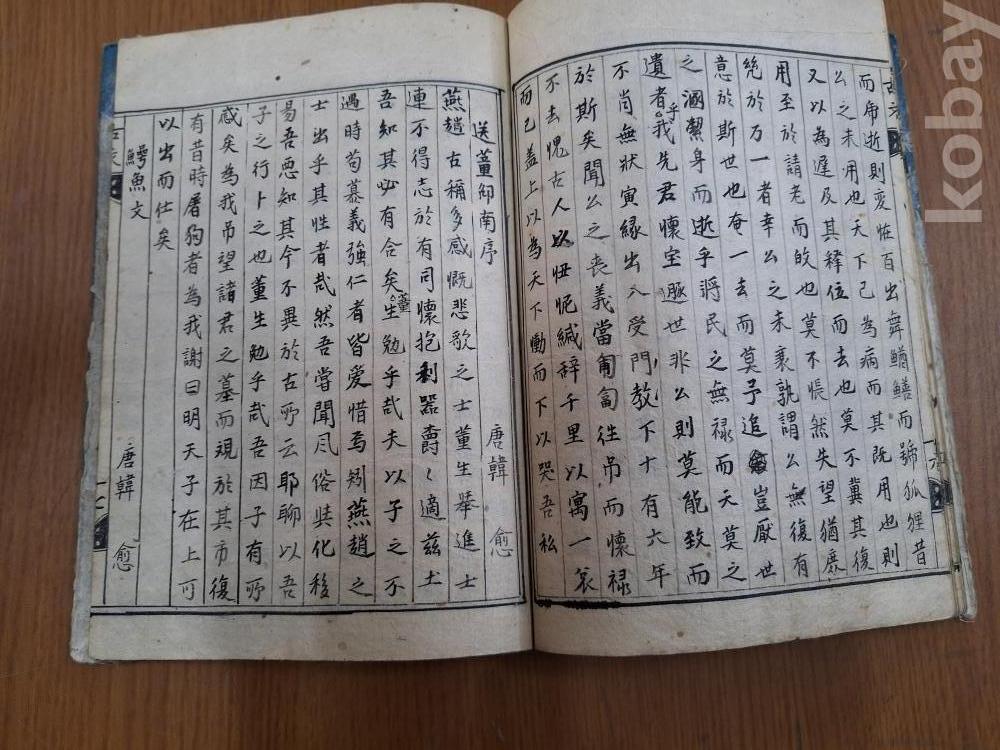 而帝逝則変怪百出舞鰌鱔而號狐狸昔
公之未用也天下已為病而其既用也則
又以為遅及其釋位而去也莫不冀其復
用至於請老而皈也莫不悵然失望猶庶
於万一者幸公之未衰孰謂公無復有
意於斯世也奄一去而莫予追豈厭世
之溷潔身而逝乎将民之無禄而天莫之
遺者乎我先君懷宝遯世非公則莫能致而
不肖無狀寅縁出入受門教下十有六年
於斯矣聞公之喪義當匍匐往吊而懷禄
不去愧古人以忸怩緘辞千里以寓一哀
而已盖上以為天下慟而下以哭吾私
送董邵南序 唐韓愈
燕趙古稱多感慨悲歌之士董生挙進士
連不得志於有司懷抱利器欝〻適茲土
吾知其必有合矣董生勉乎哉夫以子之不
遇時苟慕義強仁者皆愛惜焉矧燕趙之
士出乎其性者哉然吾嘗聞風俗與化移
易吾悪知其今不異於古所云耶聊以吾
子之行卜之也董生勉乎哉吾因子有所
感矣為我吊望諸君之墓而視於其市復
有昔時屠狗者為我謝曰明天子在上可
以出而仕矣
鰐魚文 唐韓愈
kobay